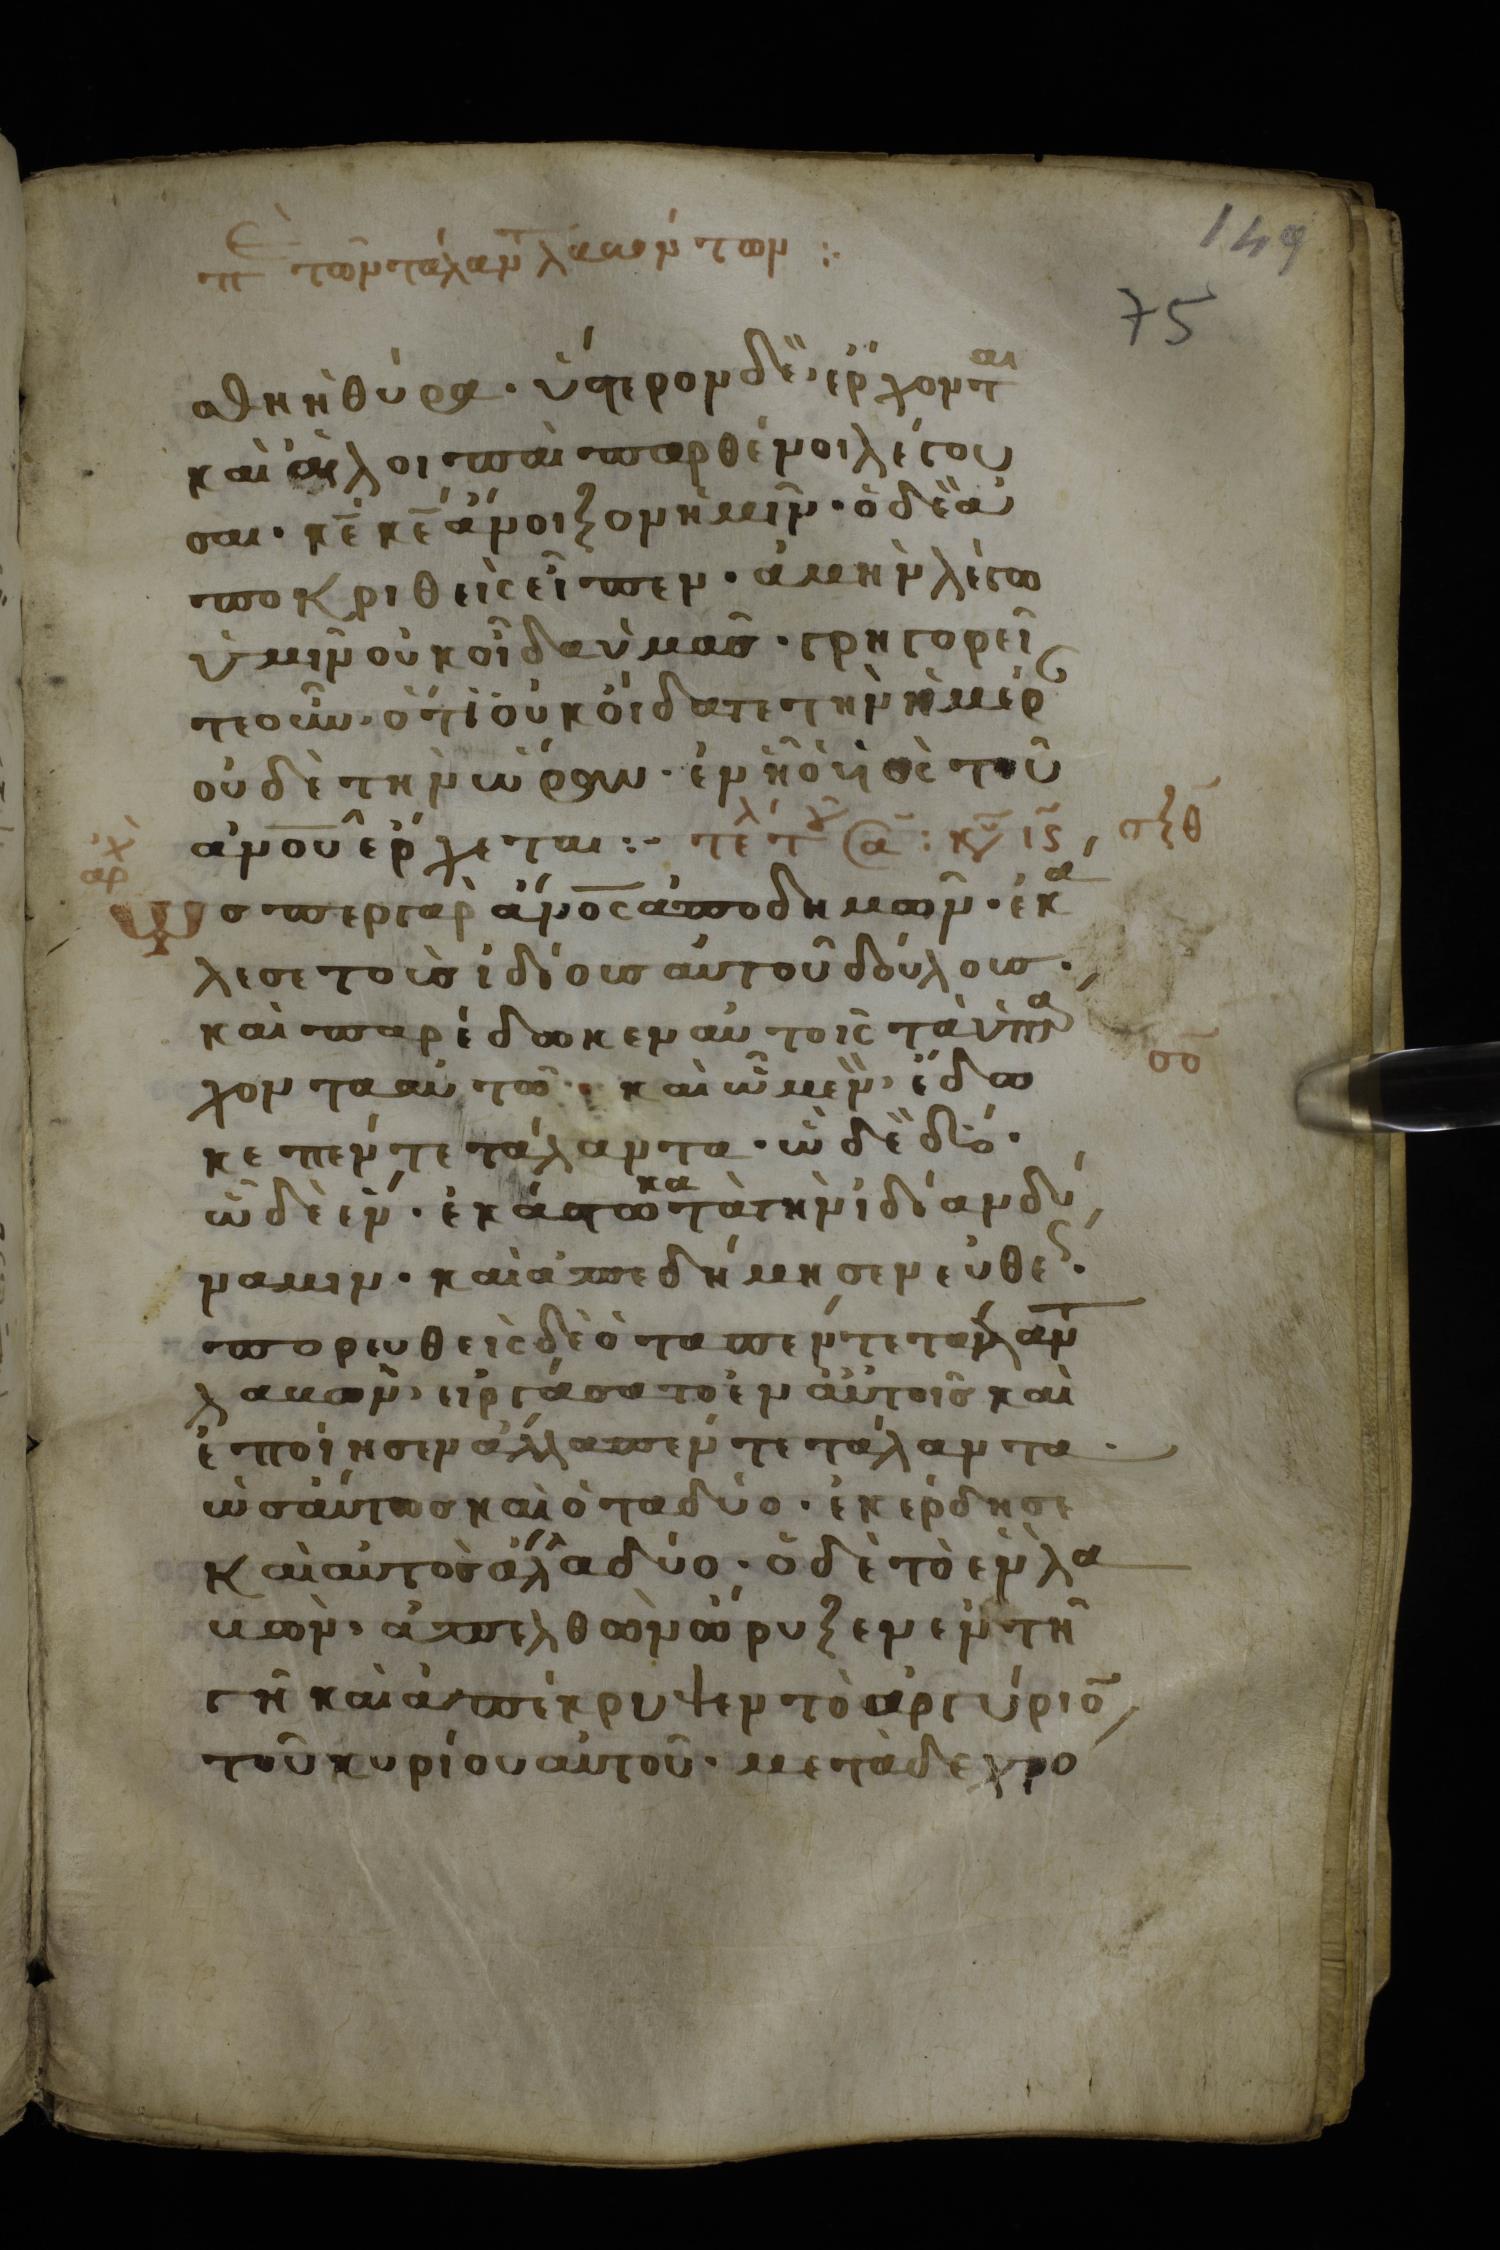 149
75
Ἐπὶ τῶν τάλαντ λαβόντων :·
σθη ἡ θύρα · ὕστερον δὲ, ἔρχοντ αι
καὶ αἱ λοιπαὶ παρθένοι λέγου
σαι · κε̅ κε̅ ἄνοιξον ἡμῖν · ὁ δὲ ἀ
ποκριθεὶς εἶπεν · ἀμὴν λέγω
ὑμῖν οὐκ οἶδα ὑμᾶς · γρηγορεῖ
τε οὖν, ὅτι οὐκ οἴδατε τὴν ἡμέρ
οὐδὲ τὴν ὥραν · ἐν ᾗ ὁ υἱὸς τοῦ
ἀν̅ο̅υ̅ ἔρχεται :· τέλ τ σα : κυ ις, σξθ
ἀρχ
Ὥσπερ γὰρ ἀν̅ο̅ς ἀποδημῶν · ἐκά
λεσε τοὺς ἰδίους αὐτοῦ δούλους ·
καὶ παρέδωκεν αὐτοῖς τὰ ὑπα
χοντα αὐτοῦ · καὶ ᾧ μὲν, ἔδω
σο
κε πέντε τάλαντα · ᾧ δὲ δύο ·
ᾧ δὲ ἕν · ἑκάστω κατὰ τὴν ἰδίαν δύ
ναμιν · καὶ ἀπεδήμησεν εὐθές ·
πορευθεὶς δὲ ὁ τὰ πέντε τάλαντ
λαβὼν, εἰργάσατο ἐν αὐτοῖς καὶ
ἐποίησεν ἄλλα πέντε τάλαντα ·
ὡσαύτως καὶ ὁ τὰ δύο · ἐκέρδησε
καὶ αὐτὸς ἄλλα δύο · ὁ δὲ τὸ ἓν λα
βὼν · ἀπελθὼν ὤρυξεν ἐν τῇ
γῇ καὶ ἀπέκρυψεν τὸ ἀργύριο̅
τοῦ κυρίου αὐτοῦ · μετὰ δὲ χρο